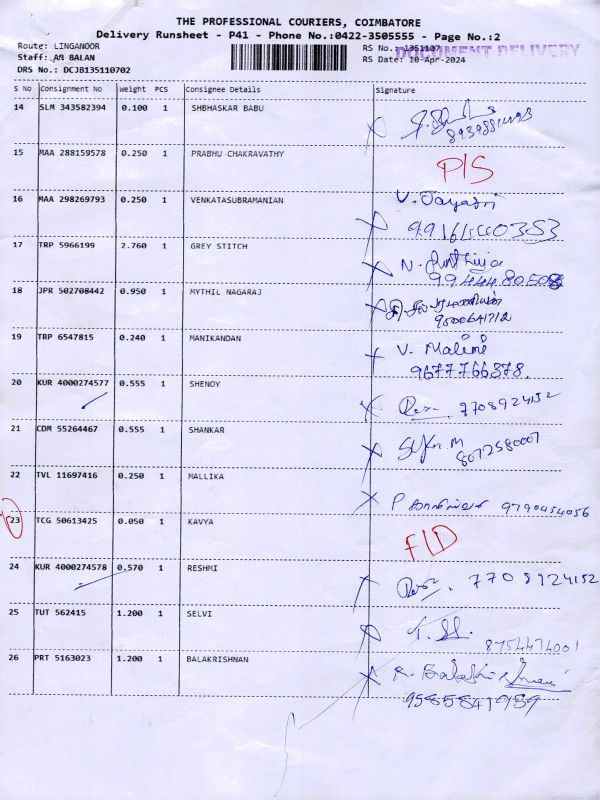 THE PROFESSIONAL COURIERS, COIMBATORE
Delivery Runsheet - P41 - Phone No.:0422-3505555 - Page No.:2
Route: LINGANOOR RS No.: 1351107
DOCUMENT DELIVERY
Staff: AR BALAN RS Date: 10-Apr-2024
DRS No.: DCJB135110702
S No Consignment No Weight PCS Consignee Details Signature
14 SLM 343582394 0.100 1 SHBHASKAR BABU
15 MAA 288159578 0.250 1 PRABHU CHAKRAVATHY P/S
16 MAA 298269793 0.250 1 VENKATASUBRAMANIAN V. Jayasri
17 TRP 5966199 2.760 1 GREY STITCH
18 JPR 502708442 0.950 1 MYTHIL NAGARAJ
9500641712
19 TRP 6547815 0.240 1 MANIKANDAN V. Malini
9677766378.
20 KUR 4000274577 0.555 1 SHENOY 7708924152
21 CDM 55264467 0.555 1 SHANKAR
8072580007
22 TVL 11697416 0.250 1 MALLIKA P 9790454056
23 TCG 50613425 0.050 1 KAVYA F/D
24 KUR 4000274578 0.570 1 RESHMI 7708924152
25 TUT 562415 1.200 1 SELVI
8754474001
26 PRT 5163023 1.200 1 BALAKRISHNAN
9585841959